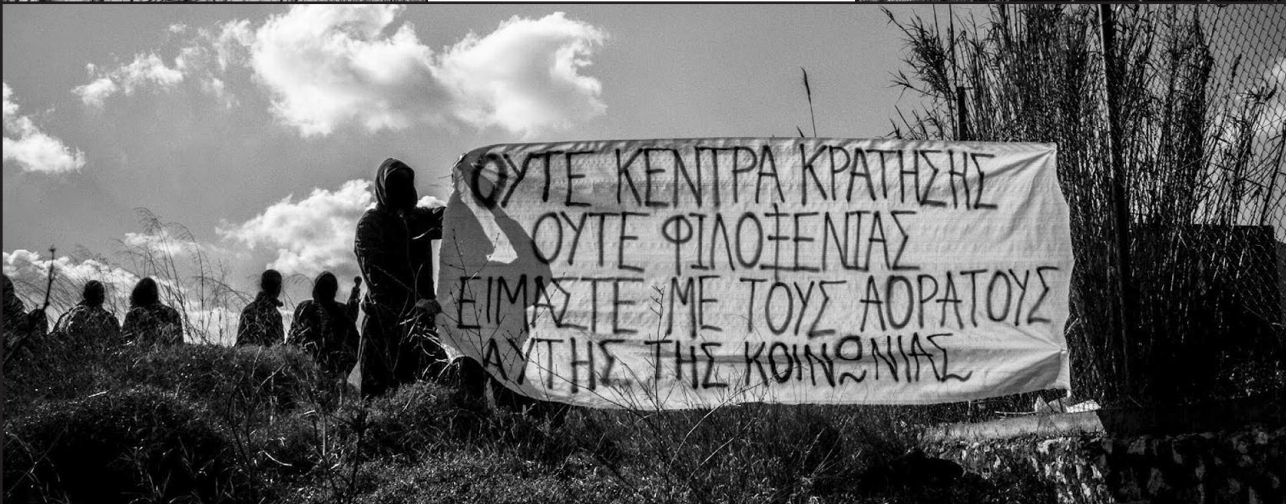 ΟΥΤΕ ΚΕΝΤΡΑ ΚΡΑΤΗΣΗΣ
ΟΥΤΕ ΦΙΛΟΞΕΝΙΑΣ
ΕΙΜΑΣΤΕ ΜΕ ΤΟΥΣ ΑΟΡΑΤΟΥΣ
ΑΥΤΗΣ ΤΗΣ ΚΟΙΝΩΝΙΑΣ